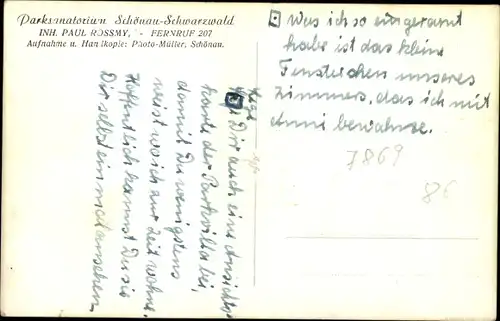 Parksanatorium Schönau-Schwarzwald
INH. PAUL ROSSMY, - FERNRUF 207
Aufnahme u. Handkopie: Photo-Müller, Schönau.
Was ich so eingeramt
habe ist das kleine
Fensterchen unseres
Zimmers, das ich mit
Anni bewohne.
7869
86
Dir auch eine Ansichts
karte der Parkvilla bei,
damit Du wenigstens
weist wo ich zur Zeit wohne.
Hoffentlich kannst Du sie
Dir selbst ein mal ansehen